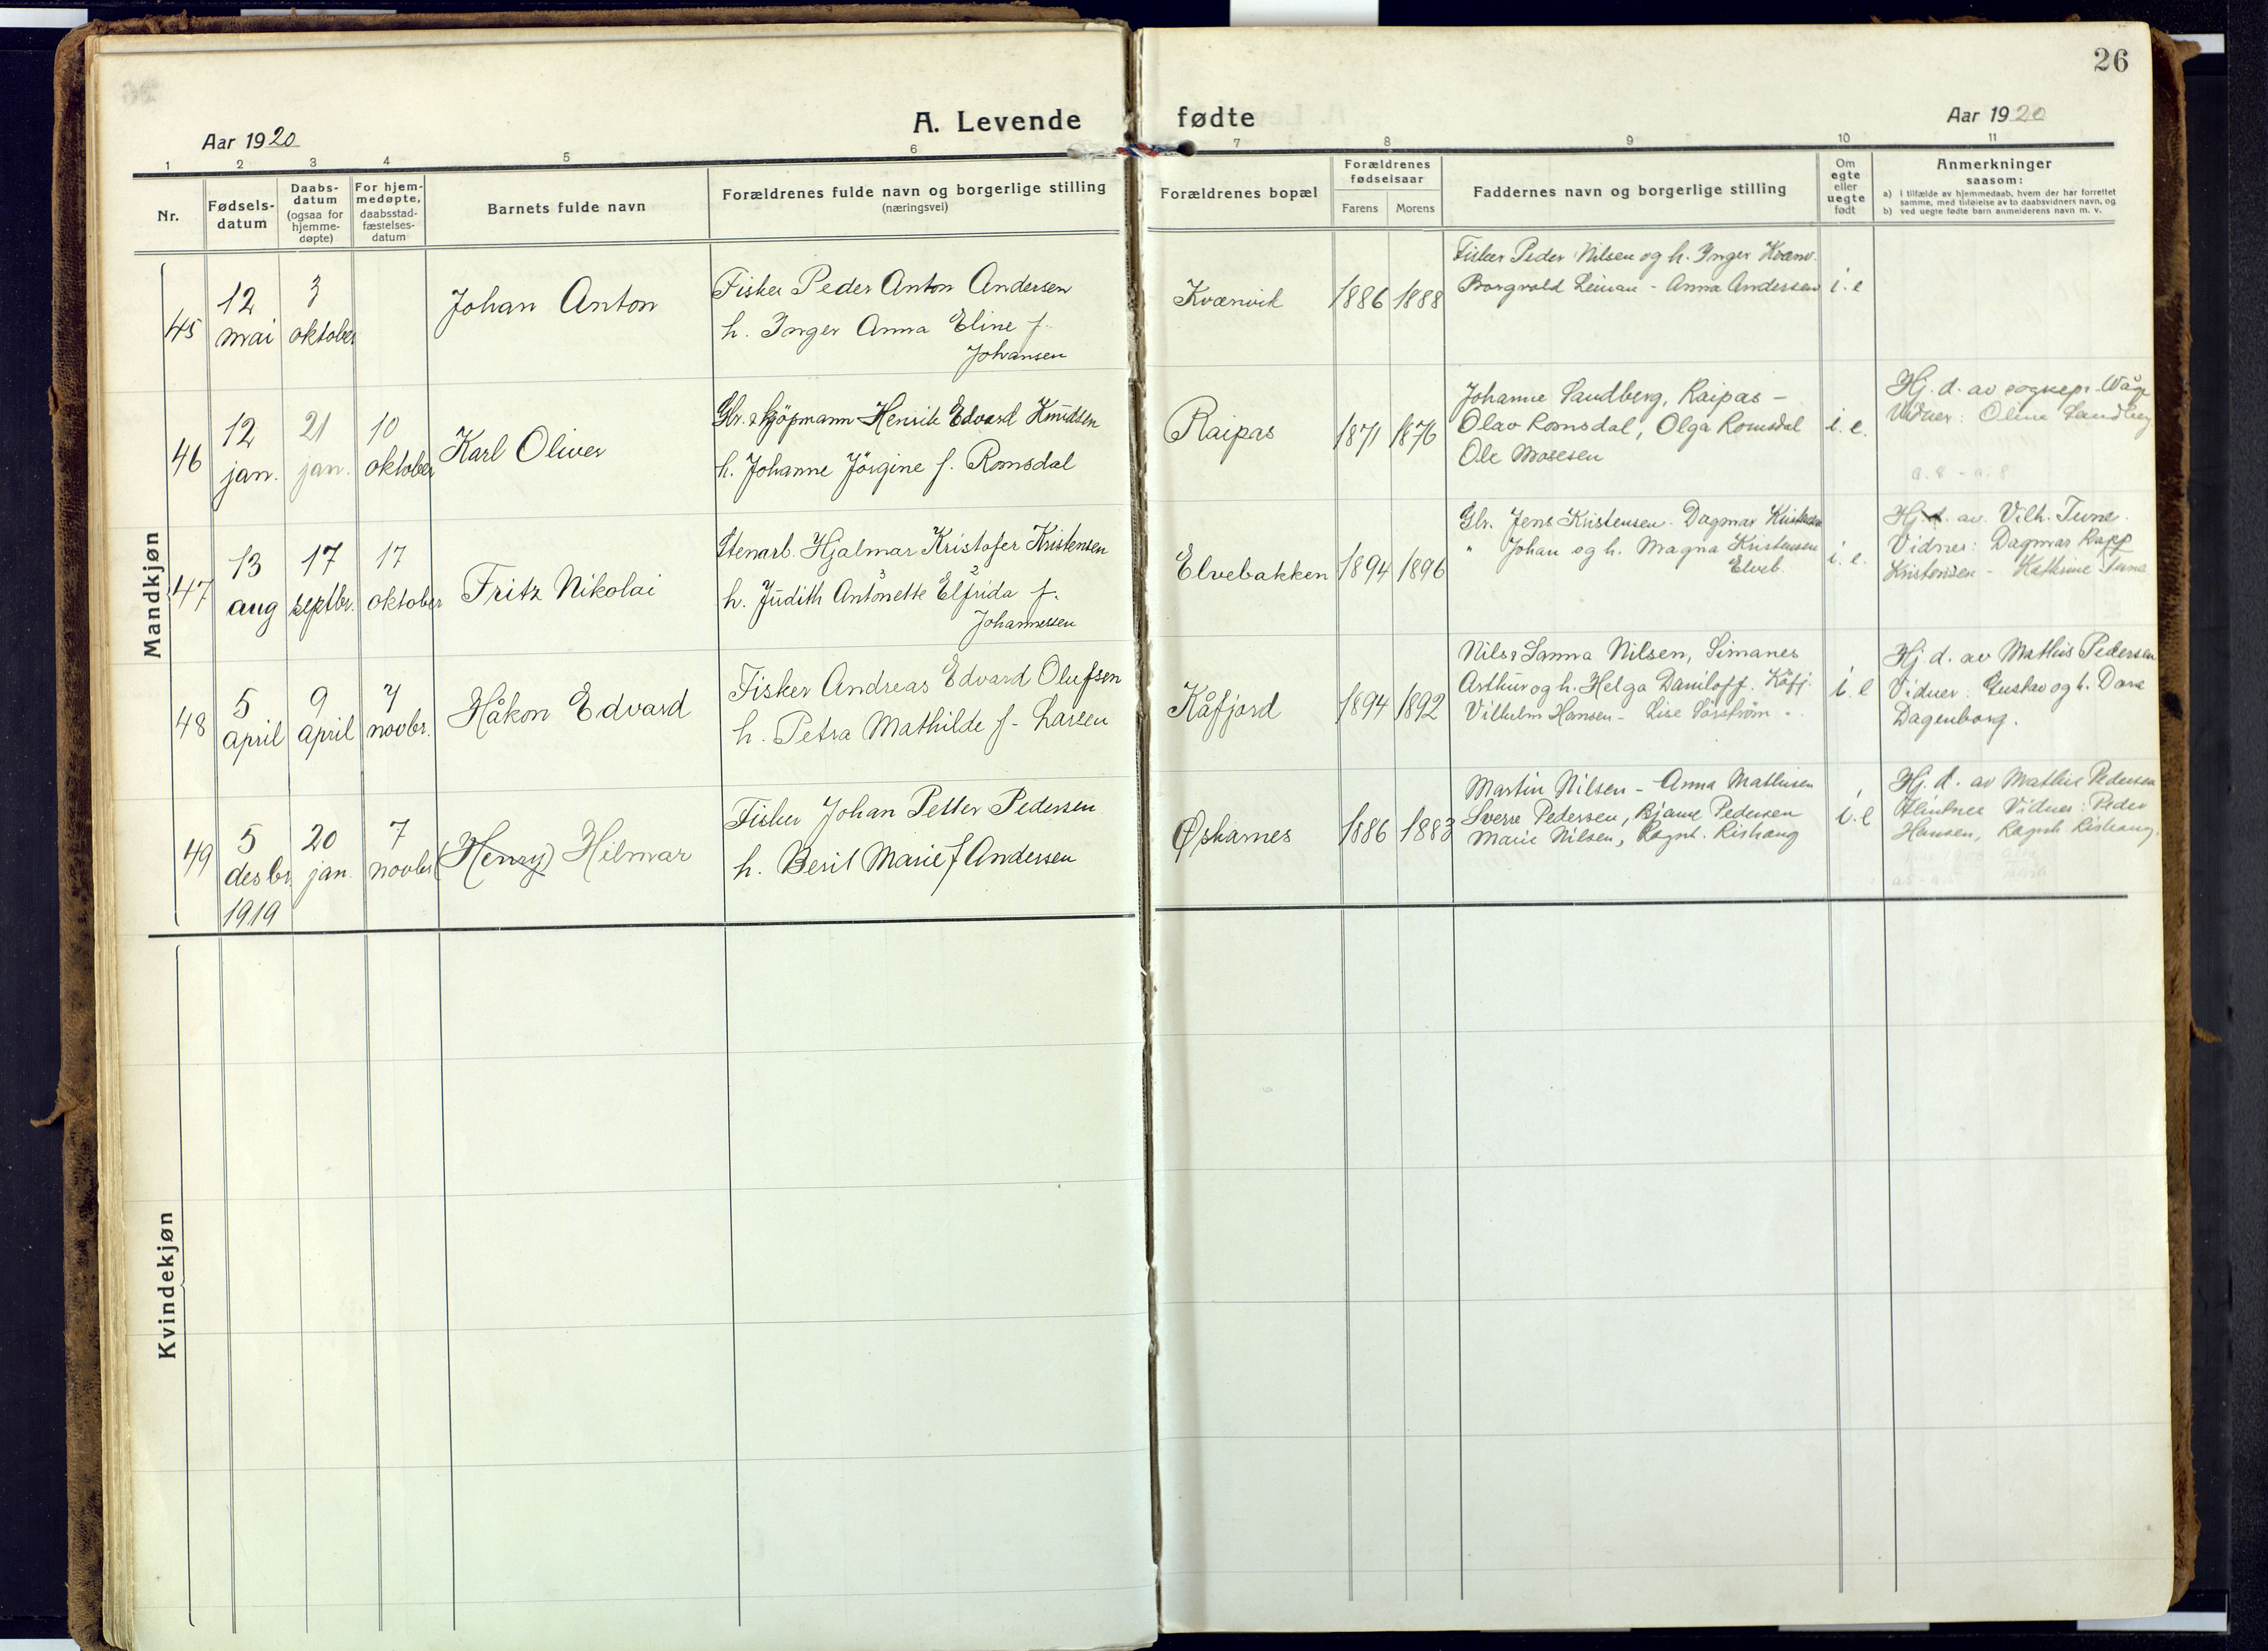 26
A. Levende fødte
Aar 1920
Aar 1920
1 2 3 4 5 6 7 8 9 10 11
Nr.
Fødsels-
datum
Daabs-
datum
(ogsaa for
hjemme-
døpte)
For hjem-
medøpte,
daabsstad-
fæstelses-
datum
Barnets fulde navn
Forældrenes fulde navn og borgerlige stilling
(næringsvei)
Forældrenes bopæl
Forældrenes
fødselsaar
Farens Morens
Faddernes navn og borgerlige stilling
Om
egte
eller
uegte
født
Anmerkninger
saasom:
a) i tilfælde av hjemmedaab, hvem der har forrettet
samme, med tilføielse av to daabsvidners navn, og
b) ved uegte fødte barn anmelderens navn m. v.
Mandkjøn
45
12
mai
3
oktober
Johan Anton
Fisker Peder Anton Andersen
h. Inger Anna Eline f.
Johansen
Kvænvik
1886 1888
Fisker Peder Nilsen og h. Inger Kvænv.
Borgvald Leiman - Anna Andersen
i. e
46
12
jan.
21
jan.
10
oktober
Karl Oliver
Gbr. & kjöpmann Henrik Edvard Knudsen
h. Johanne Jörgine f. Romsdal
Raipas
1871 1876
Johanne Sandberg, Raipas -
Olav Romsdal, Olga Romsdal
Ole Mosesen
i. e.
Hj. d. av sognepr. Wåge
Vidner: Oline Sandberg
47
13
aug
17
septbr.
17
oktober
Fritz Nikolai
Stenarb. Hjalmar Kristofer Kristensen
h. Judith Antonette Elfrida f.
Johannessen
Elvebakken
1894 1896
Gbr. Jens Kristensen. Dagmar Kristensen
" Johan og h. Magna Kristensen
Elveb.
i. e.
Hj. d. av Vilh. Tune.
Vidner: Dagmar Rapp
Kristensen - Kathrine Tune
48
5
april
9
april
7
novbr.
Håkon Edvard
Fisker Andreas Edvard Olufsen
h. Petra Mathilde f. Larsen
Kåfjord
1894 1892
Nils & Sanna Nilsen, Simanes
Arthur og h. Helga Daniloff. Kåfj.
Vilhelm Hansen - Lise
i. e
Hj. d. av Mathis Pedersen
Vidner: Gustav og h. Dora
Dagenborg.
49
5
desbr.
1919
20
jan.
7
novbr
(Henry) Hilmar
Fisker Johan Petter Pedersen
h. Berit Marie f Andersen
Øskarnes
1886 1883
Martin Nilsen - Anna Mathisen
Sverre Pedersen, Bjarne Pedersen
Marie Nilsen, Ragnh. Rishaug
i. e
Hj. d. av Mathis Pedersen
Vidner: Peder
Hansen, Ragnh. Rishaug.
Kvindekjøn